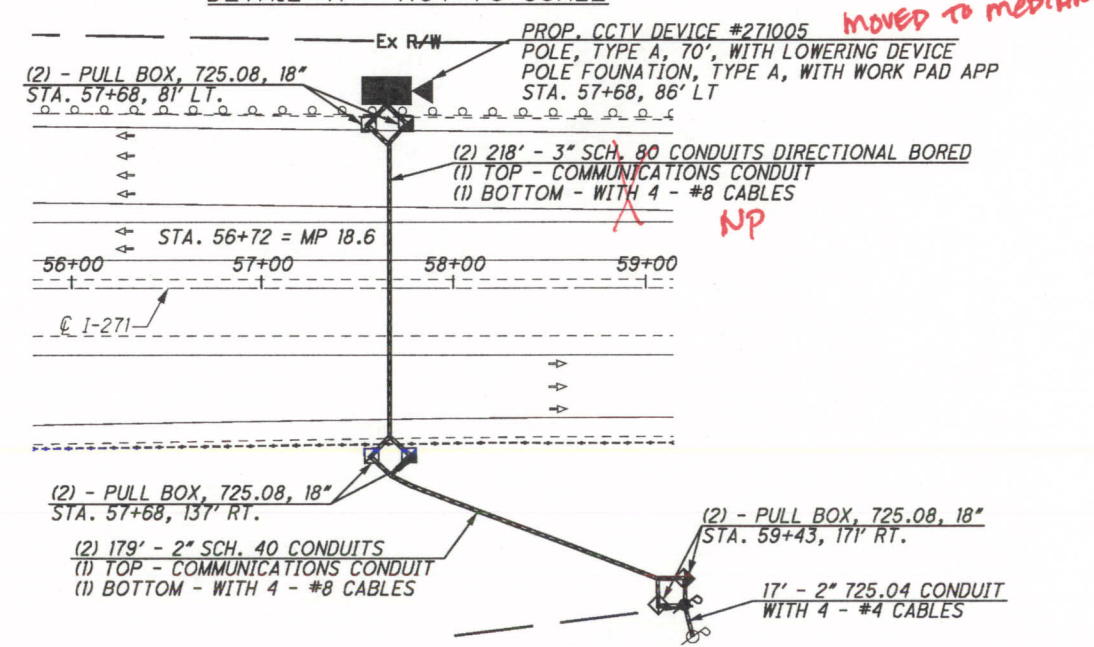 MOVED TO
Ex R/W
PROP. CCTV DEVICE #271005
POLE, TYPE A, 70', WITH LOWERING DEVICE
POLE FOUNATION, TYPE A, WITH WORK PAD APP
STA. 57+68, 86' LT
(2) - PULL BOX, 725.08, 18"
STA. 57+68, 81' LT.
(2) 218' - 3" SCH. 80 CONDUITS DIRECTIONAL BORED
(1) TOP - COMMUNICATIONS CONDUIT
(1) BOTTOM - WITH 4 - #8 CABLES
NP
STA. 56+72 = MP 18.6
56+00 57+00 58+00 59+00
℄ I-271
(2) - PULL BOX, 725.08, 18"
STA. 57+68, 137' RT.
(2) 179' - 2" SCH. 40 CONDUITS
(1) TOP - COMMUNICATIONS CONDUIT
(1) BOTTOM - WITH 4 - #8 CABLES
(2) - PULL BOX, 725.08, 18"
STA. 59+43, 171' RT.
17' - 2" 725.04 CONDUIT
WITH 4 - #4 CABLES